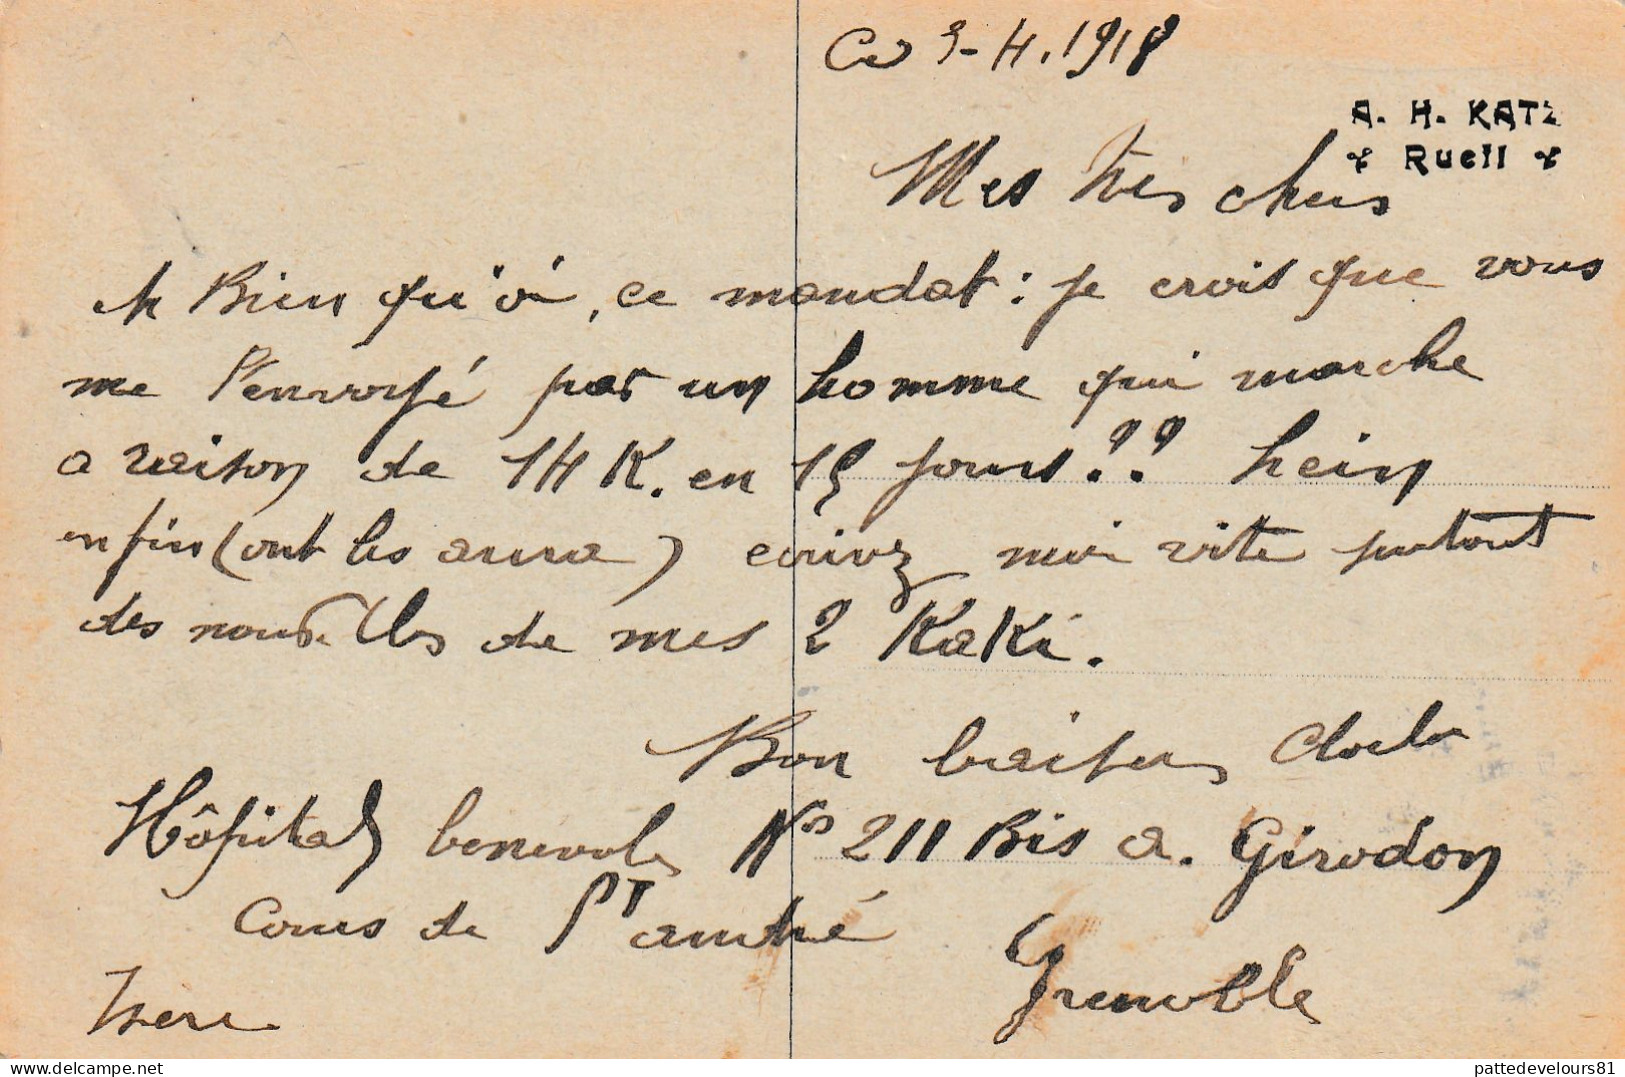 Ce 5-4.1918
A. H. KATZ
Rueil
Mes très chers
eh Bien qu'oi, ce mandat : je crois que vous
me l'envoyé par un homme qui marche
a raison de 14 K. en 15 jours ?? hein
enfin (ont les aura) ecrivez moi vite surtout
des nouvelles de mes 2 KaKi.
Bon baisers
Hôpital benevole No 211 Bis a. Girodon
Cours de St andré
Isere
Grenoble
pattedevelours81